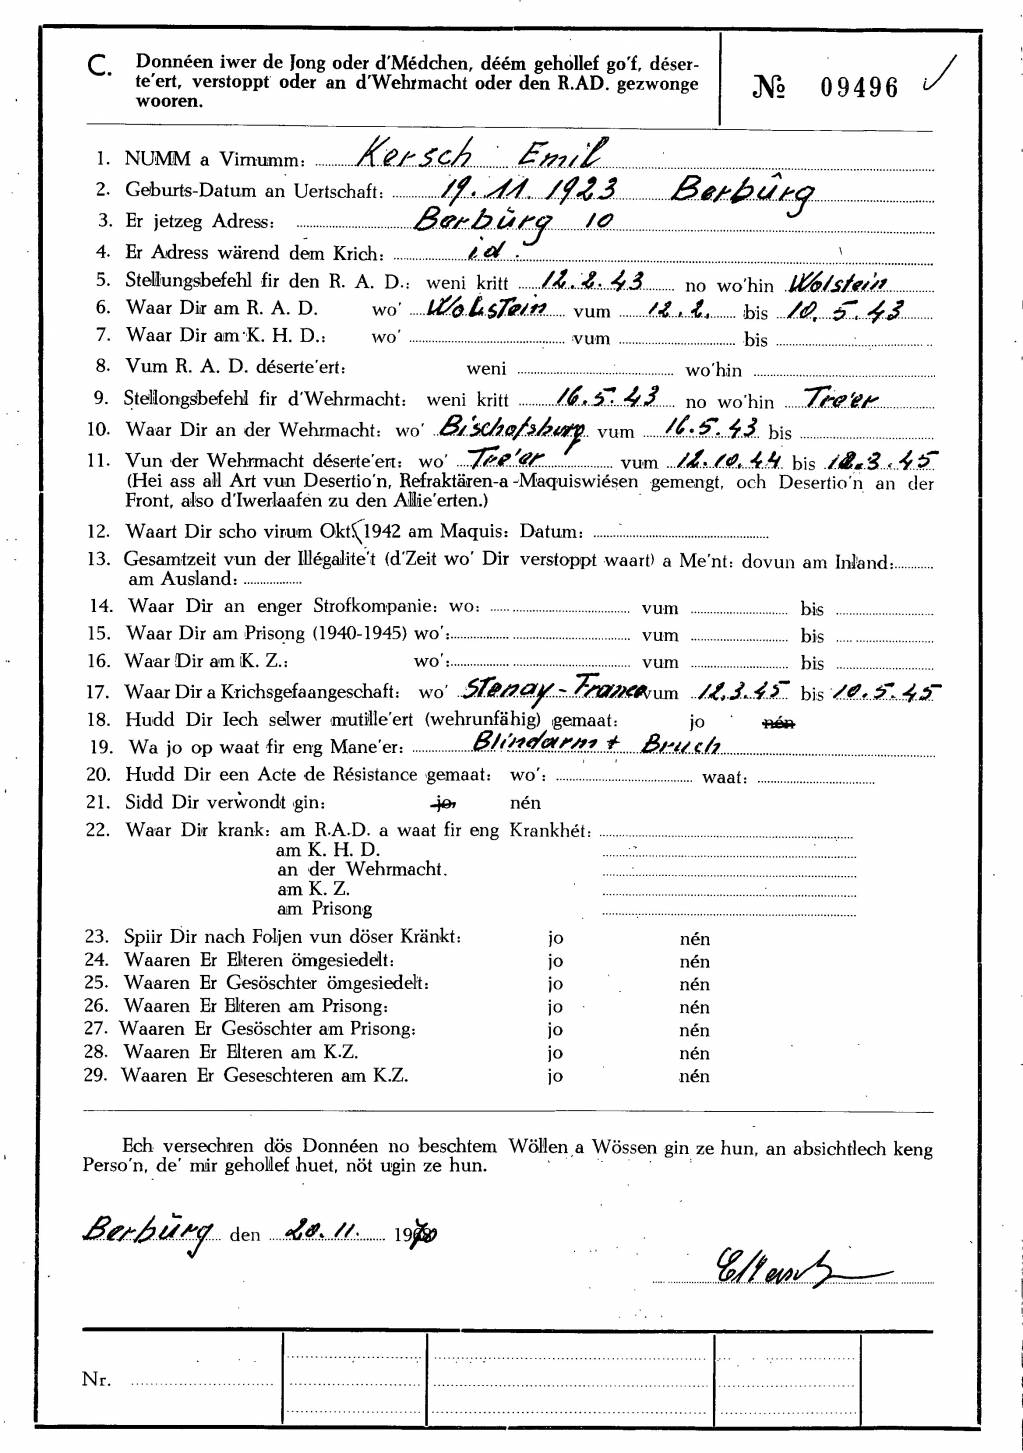 C. Donnéen iwer de Jong oder d'Médchen, déém gehollef go'f, déser-
te'ert, verstoppt oder an d'Wehrmacht oder den R.AD. gezwonge
wooren.
№ 09496
1. NUMM a Virnumm: Kersch Emil
2. Geburts-Datum an Uertschaft: 19.11.1923 Berbûrg
3. Er jetzeg Adress: Berbŭrg 10
4. Er Adress wärend dem Krich: id.
5. Stellungsbefehl fir den R. A. D.: weni kritt 12.2.43 no wo'hin Wolstein
6. Waar Dir am R. A. D. wo' Wolstein vum 12.2. bis 10.5.43
7. Waar Dir am K. H. D.: wo' vum bis
8. Vum R. A. D. déserte'ert: weni wo'hin
9. Stellongsbefehl fir d'Wehrmacht: weni kritt 16.5.43 no wo'hin Tre'er
10. Waar Dir an der Wehrmacht: wo' Bischofsburg vum 16.5.43 bis
11. Vun der Wehrmacht déserte'ert: wo' Tre'er vum 12.10.44 bis 12.3.45
(Hei ass all Art vun Desertio'n, Refraktären-a-Maquiswiésen gemengt, och Desertio'n an der
Front, also d'Iwerlaafen zu den Allie'erten.)
12. Waart Dir scho virum Okt. 1942 am Maquis: Datum:
13. Gesamtzeit vun der Illégalite't (d'Zeit wo' Dir verstoppt waart) a Me'nt: dovun am Inland:
am Ausland:
14. Waar Dir an enger Strofkompanie: wo: vum bis
15. Waar Dir am Prisong (1940-1945) wo': vum bis
16. Waar Dir am K. Z.: wo': vum bis
17. Waar Dir a Krichsgefaangeschaft: wo' Stenay-France vum 12.3.45 bis 10.5.45
18. Hudd Dir Iech selwer mutille'ert (wehrunfähig) gemaat: jo nén
19. Wa jo op waat fir eng Mane'er: Blindarm + Bruch
20. Hudd Dir een Acte de Résistance gemaat: wo': waat:
21. Sidd Dir verwondt gin: jo, nén
22. Waar Dir krank: am R.A.D. a waat fir eng Krankhét:
am K. H. D.
an der Wehrmacht.
am K. Z.
am Prisong
23. Spiir Dir nach Foljen vun döser Kränkt: jo nén
24. Waaren Er Elteren ömgesiedelt: jo nén
25. Waaren Er Gesöschter ömgesiedelt: jo nén
26. Waaren Er Elteren am Prisong: jo nén
27. Waaren Er Gesöschter am Prisong: jo nén
28. Waaren Er Elteren am K.Z. jo nén
29. Waaren Er Geseschteren am K.Z. jo nén
Ech versechren dös Donnéen no beschtem Wöllen a Wössen gin ze hun, an absichtlech keng
Perso'n, de' mir gehollef huet, nöt ugin ze hun.
Berbŭrg den 20.11. 1970
EKersch
Nr.